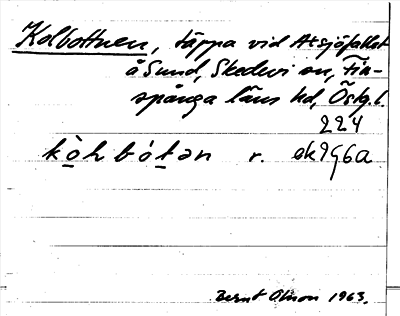 Kolbottnen, täppa vid Atsjöfallet
å Sund, Skedevi sn, Fin-
spånga läns hd, Östg. l.
224
kò̠lbót̠ən r. ek 956a
Bernt Olsson 1963.